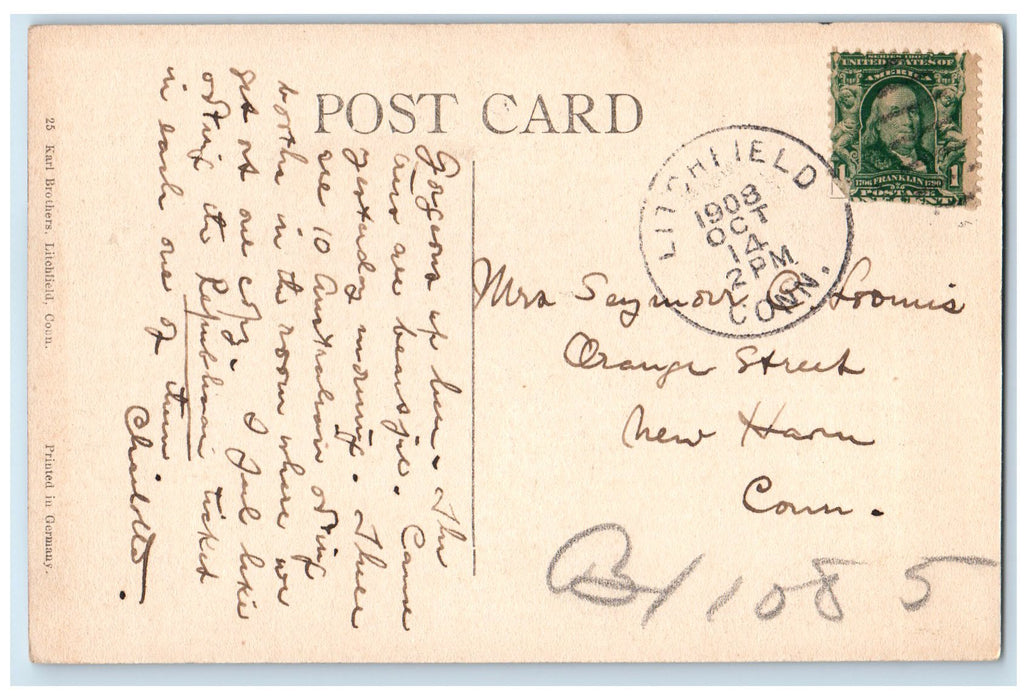 POST CARD
Gorgeous up here. The
and are beautiful. Came
yesterday morning. There
are 10 Australian voting
booths in the room where we
get at one copy. I feel like
voting the Republican ticket
in each one of them
Charlotte.
25 Karl Brothers, Litchfield, Conn.
Printed in Germany.
SERIES 1902
UNITED STATES OF
AMERICA
1706 FRANKLIN 1790
1 ONE 1
POSTAGE
LITCHFIELD
1908
OCT
14
2 PM
CONN.
Mrs Seymour C. Loomis
Orange Street
New Haven
Conn.
1085